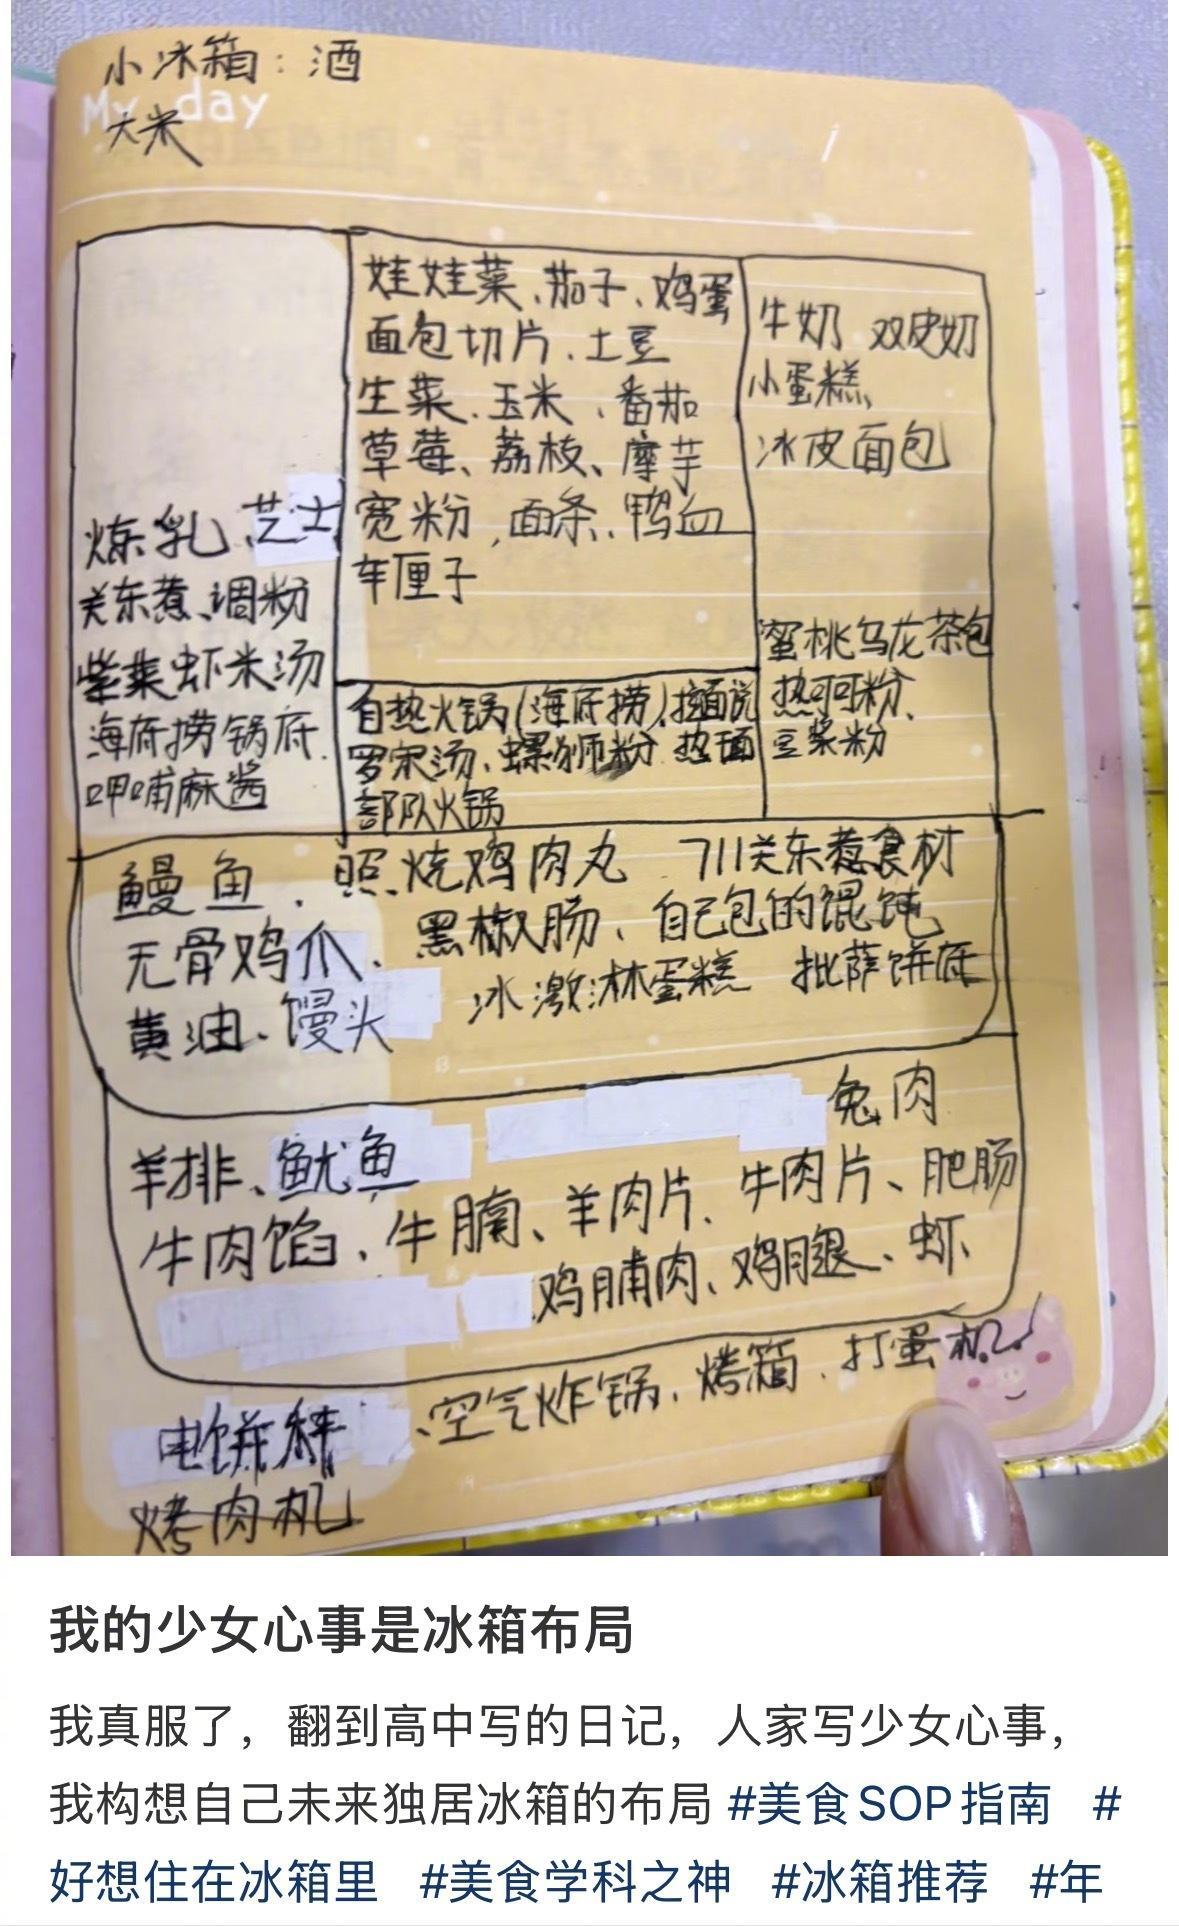 小冰箱：酒
My day
大米
炼乳、芝士
关东煮、调粉
紫菜虾米汤
海底捞锅底
呷哺麻酱
娃娃菜、茄子、鸡蛋
面包切片、土豆
生菜、玉米、番茄
草莓、荔枝、摩芋
宽粉，面条、鸭血
车厘子
自热火锅(海底捞)、拉面说
罗宋汤、螺狮粉 热面
部队火锅
牛奶 双皮奶
小蛋糕
冰皮面包
蜜桃乌龙茶包
热可可粉、
豆浆粉
鳗鱼、照烧鸡肉丸 711关东煮食材
无骨鸡爪、黑椒肠、自己包的馄饨
黄油、馒头 冰激淋蛋糕 批萨饼底
兔肉
羊排、鱿鱼
牛肉馅、牛腩、羊肉片、牛肉片、肥肠
鸡脯肉、鸡腿、虾
电饼秤、空气炸锅、烤箱、打蛋机
烤肉机
我的少女心事是冰箱布局
我真服了，翻到高中写的日记，人家写少女心事，
我构想自己未来独居冰箱的布局 #美食SOP指南 #
好想住在冰箱里 #美食学科之神 #冰箱推荐 #年